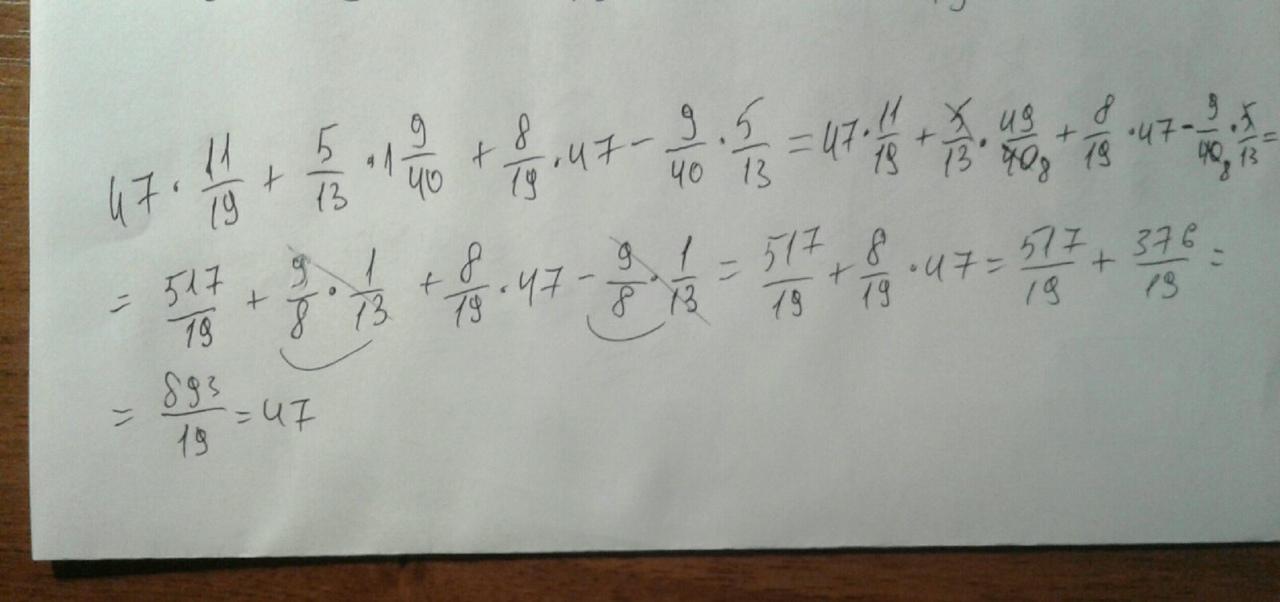 47 · 11/19 + 5/13 · 1 9/40 + 8/19 · 47 - 9/40 · 5/13 = 47 · 11/19 + 5/13 · 49/40 8 + 8/19 · 47 - 9/40 8 · 5/13 =
= 517/19 + 9/8 · 1/13 + 8/19 · 47 - 9/8 · 1/13 = 517/19 + 8/19 · 47 = 517/19 + 376/19 =
= 893/19 = 47